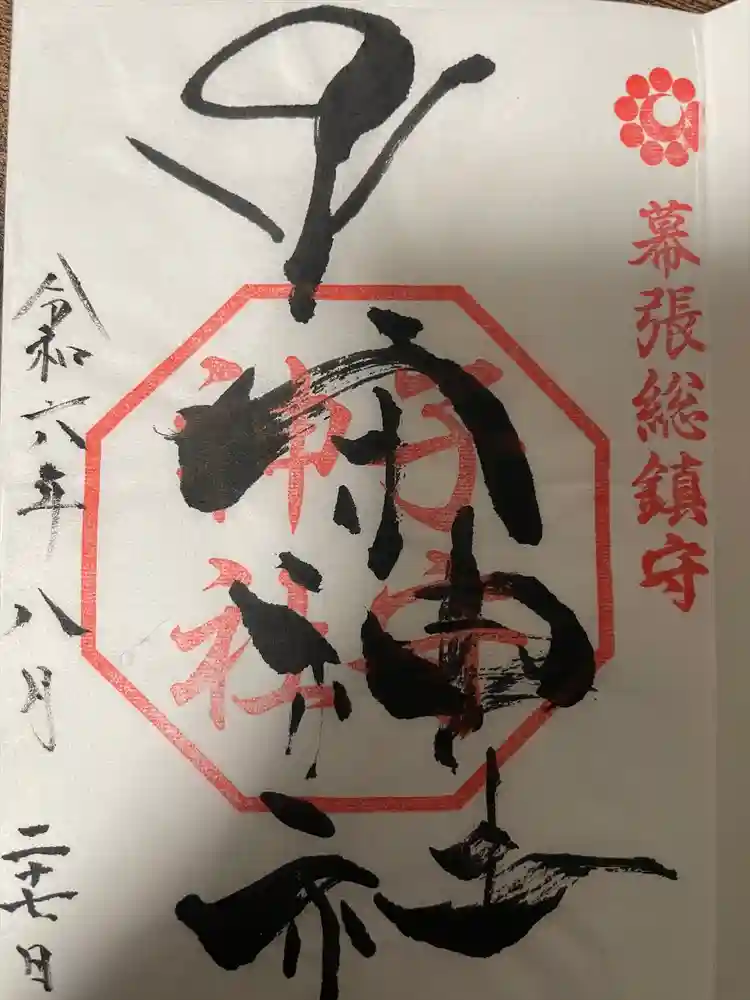 幕張総鎮守
子守神社
子守神社
令和六年八月二十七日